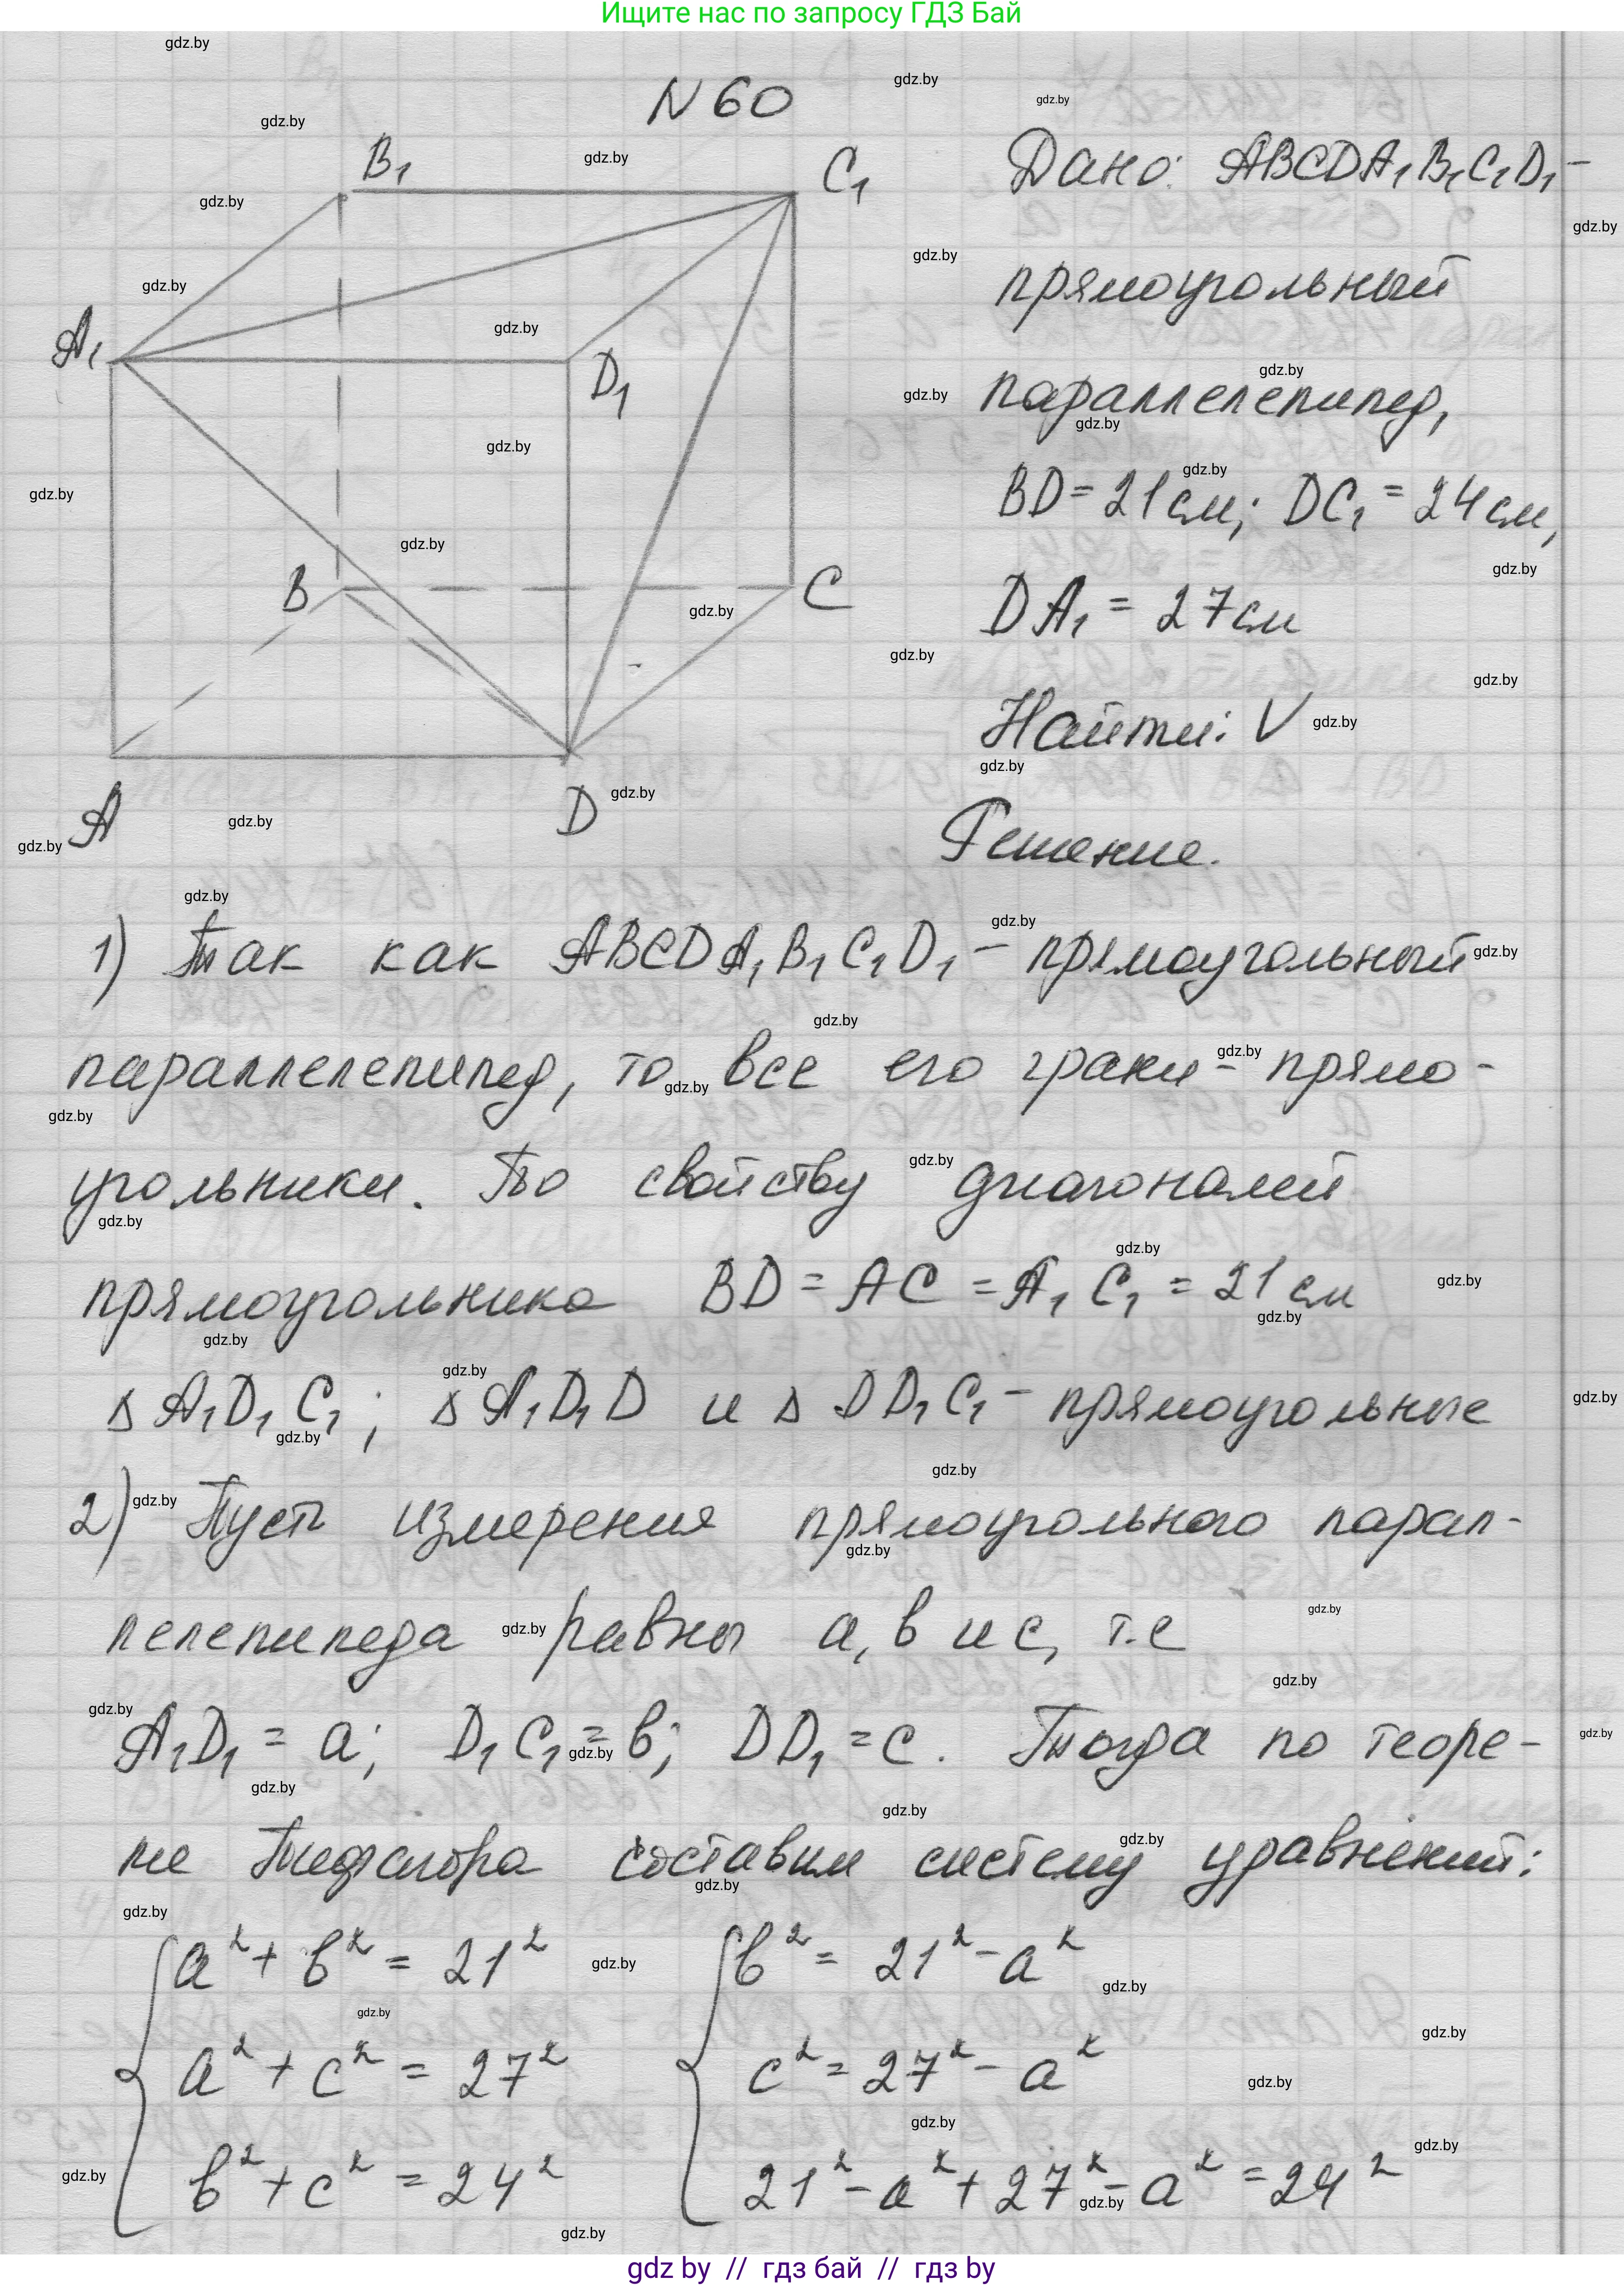 Ищите нас по запросу ГДЗ Бай
N 60
B₁
C₁
A₁
D₁
B
C
A
D
Дано: ABCDA₁B₁C₁D₁ –
прямоугольный
параллелепипед,
BD = 21 см; DC₁ = 24 см,
DA₁ = 27 см
Найти: V
Решение.
1) Так как ABCDA₁B₁C₁D₁ – прямоугольный
параллелепипед, то все его грани – прямо-
угольники. По свойству диагоналей
прямоугольника BD = AC = A₁C₁ = 21 см
Δ A₁D₁C₁; Δ A₁D₁D и Δ DD₁C₁ – прямоугольные
2) Пусть измерения прямоугольного парал-
лелепипеда равны a, в и c, т.е
A₁D₁ = a; D₁C₁ = в; DD₁ = c. Тогда по теоре-
ме Пифагора составим систему уравнений:
a² + в² = 21² в² = 21² – a²
a² + c² = 27² c² = 27² – a²
в² + c² = 24² 21² – a² + 27² – a² = 24²
gdz by // гдз бай // гдз by